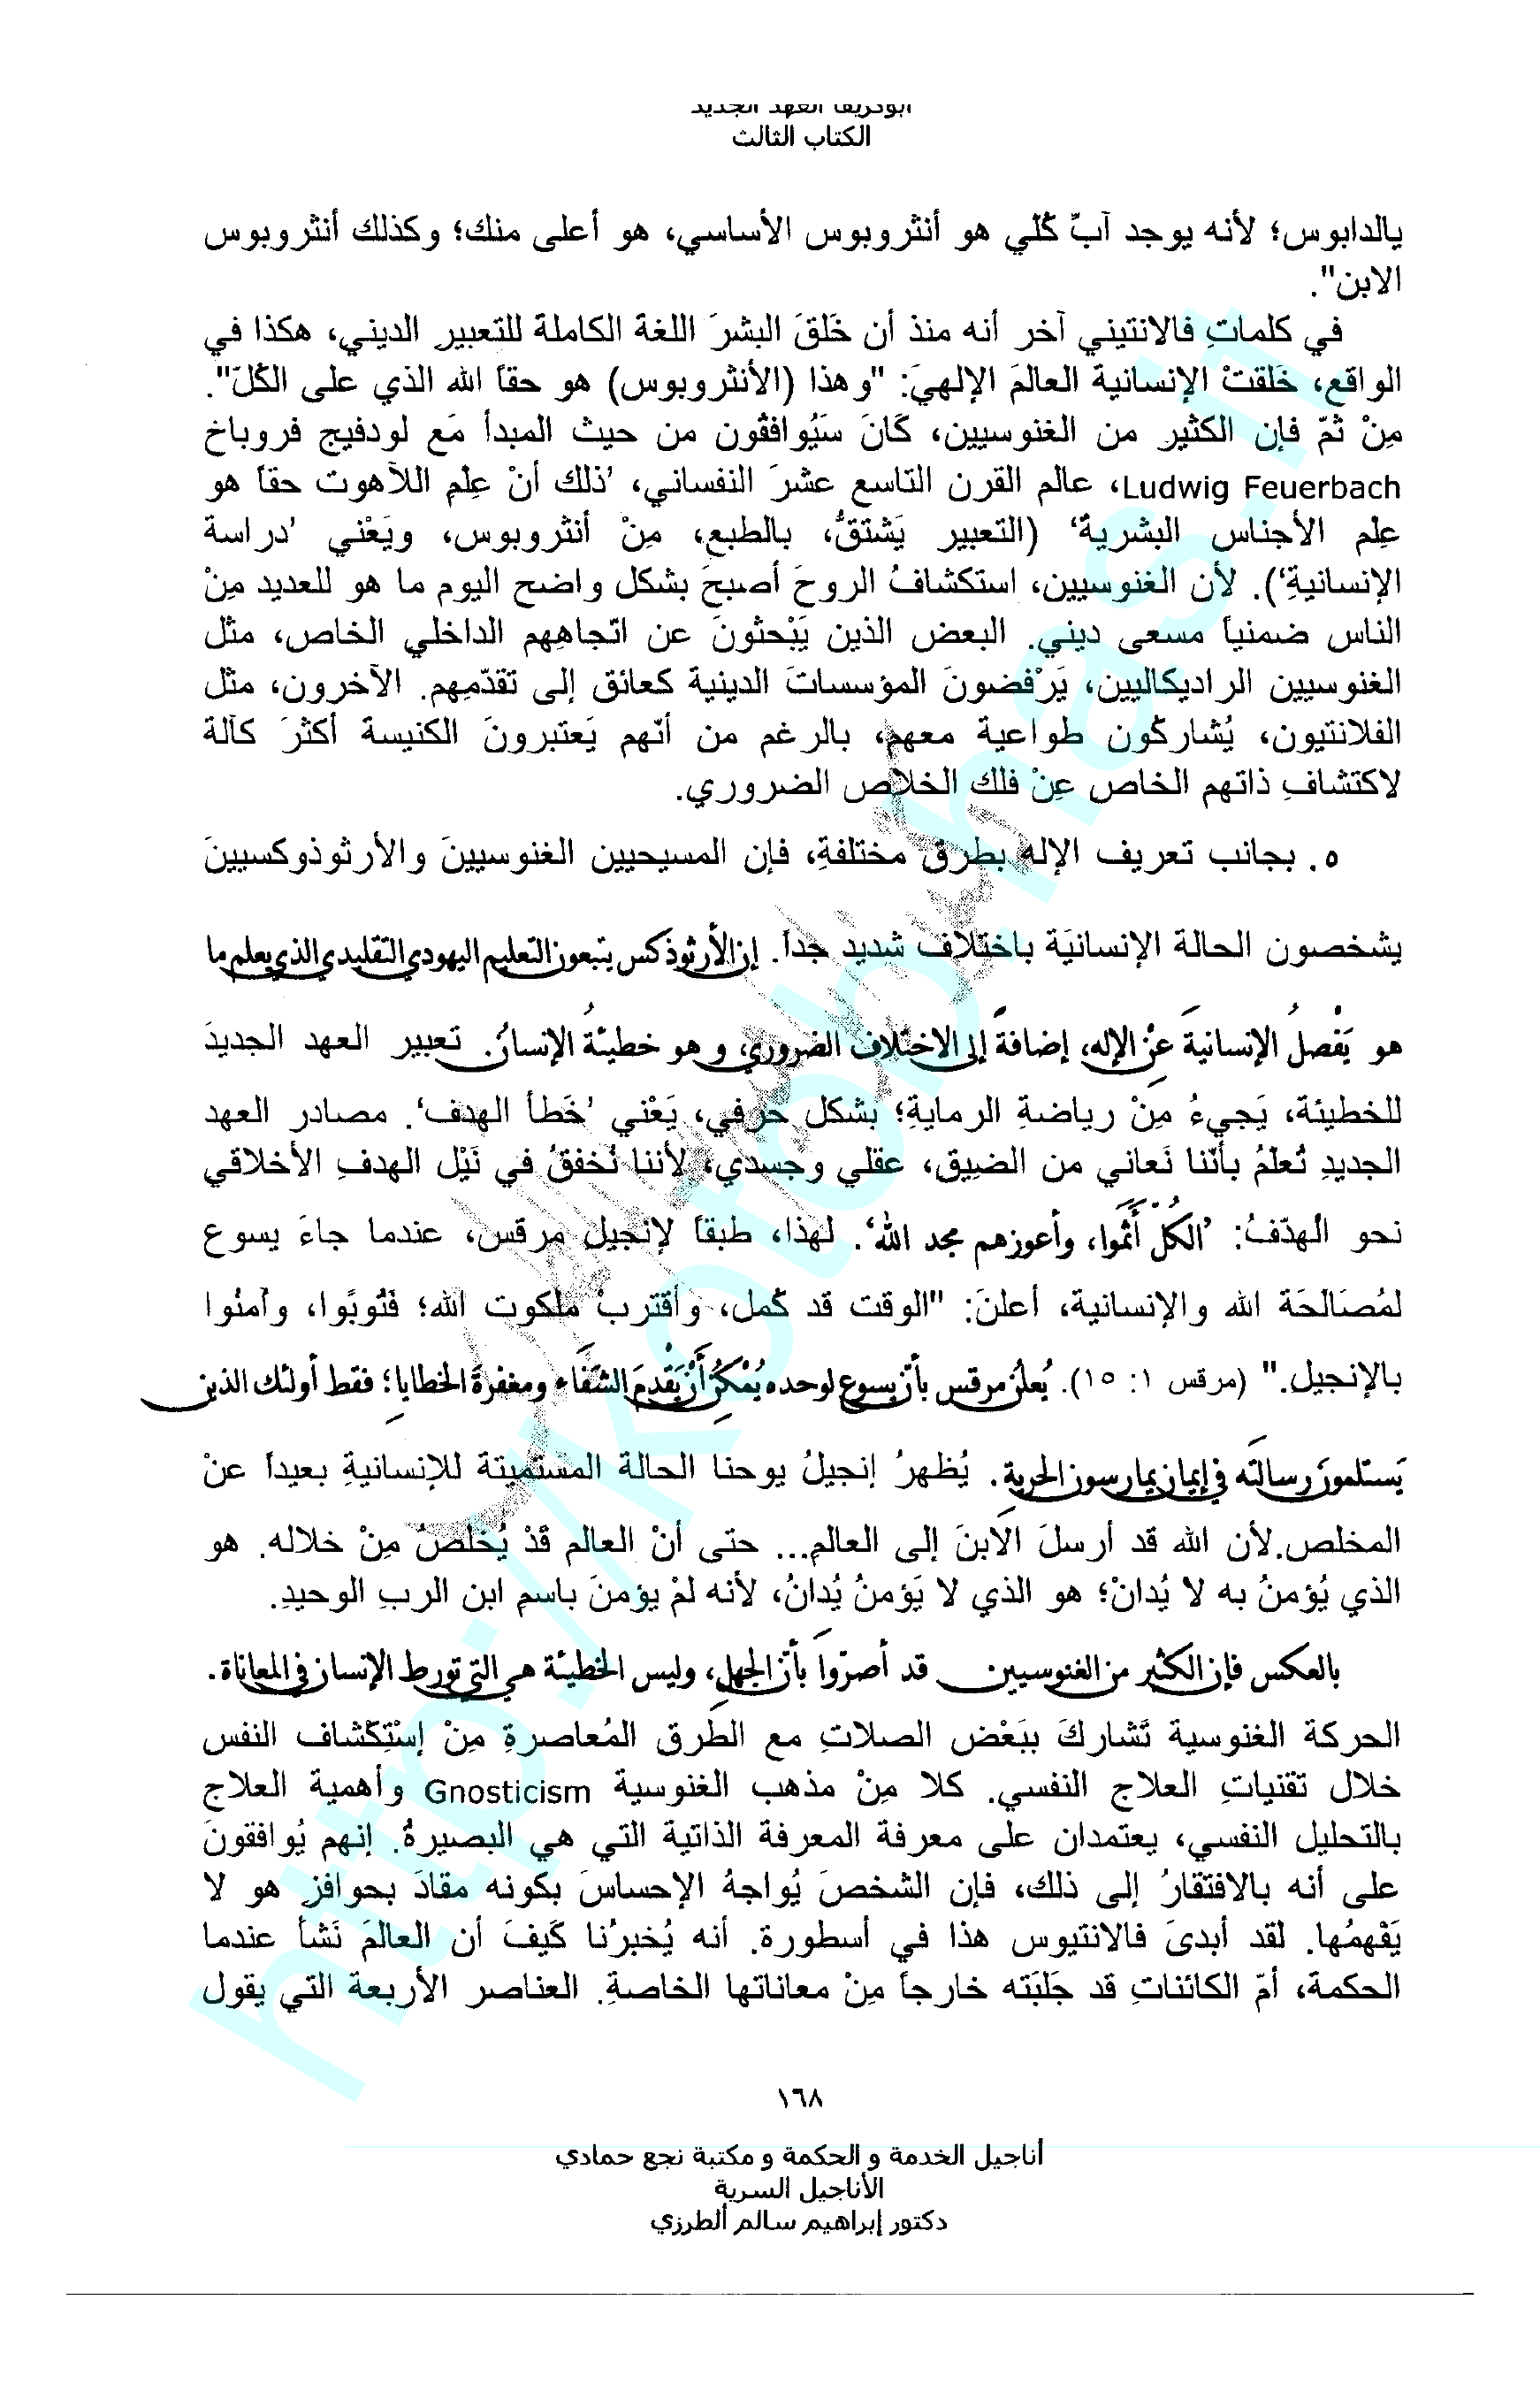 أبوكريفا العهد الجديد
الكتاب الثالث
يالدابوس؛ لأنه يوجد آبّ كُلي هو أنثروبوس الأساسي، هو أعلى منك؛ وكذلك أنثروبوس
الابن".
في كلماتِ فالانتيني آخر أنه منذ أن خَلقَ البشرَ اللغة الكاملة للتعبير الديني، هكذا في
الواقع، خَلقتْ الإنسانية العالمَ الإلهيَ: "وهذا (الأنثروبوس) هو حقاً الله الذي على الكُلّ".
مِنْ ثمّ فإن الكثير من الغنوسيين، كَانَ سَيُوافقُون من حيث المبدأ مَع لودفيج فروباخ
Ludwig Feuerbach، عالم القرن التاسع عشرَ النفساني، ’ذلك أنْ عِلمِ اللآهوت حقاً هو
عِلم الأجناس البشرية‘ (التعبير يَشتقُّ، بالطبع، مِنْ أنثروبوس، ويَعْني ’دراسة
الإنسانيةِ‘). لأن الغنوسيين، استكشافُ الروحَ أصبحَ بشكل واضح اليوم ما هو للعديد مِنْ
الناس ضمنياً مسعى ديني. البعض الذين يَبْحثونَ عن اتجاهِهم الداخلي الخاص، مثل
الغنوسيين الراديكاليين، يَرْفضونَ المؤسساتَ الدينية كعائق إلى تقدّمِهم. الآخرون، مثل
الفلانتيون، يُشاركُون طواعية معهم، بالرغم من أنّهم يَعتبرونَ الكنيسة أكثرَ كآلة
لاكتشافِ ذاتهم الخاص عِنْ فلك الخلاص الضروري.
٥. بجانب تعريف الإله بطرق مختلفةِ، فإن المسيحيين الغنوسيينَ والأرثوذوكسيينَ
يشخصون الحالة الإنسانيَة باختلاف شديد جداً. إن الأرثوذكس يتبعون التعليم اليهودي التقليدي الذي يعلم ما
هو يَفْصلُ الإنسانيةَ عنْ الإله، إضافةً إلى الاختلاف الضروري، وهو خطيئةُ الإنسانُ. تعبير العهد الجديدَ
للخطيئة، يَجيءُ مِنْ رياضةِ الرمايةِ؛ بشكل حَرفي، يَعْني ’خَطأ الهدف‘. مصادر العهد
الجديدِ تُعلمُ بأنّنا نَعاني من الضيق، عقلي وجسدي، لأننا نُخفقُ في نَيْل الهدفِ الأخلاقي
نحو الهدّفُ: ’الكُلّ أَثْمُوا، وأعوزهم مجد الله‘. لهذا، طبقاً لإنجيل مرقس، عندما جاءَ يسوع
لمُصَالحَة الله والإنسانية، أعلنَ: "الوقت قد كُمل، وأقتربْ ملكوت الله؛ فتُوبًوا، وآمنُوا
بالإنجيل." (مرقس ١: ١٥). يُعلنُ مرقس بأنّ يسوع لوحده يُمْكنُ أَنْ يَقْدمَ الشفَاء ومغفرةَ الخطايا؛ فقط أولئك الذين
يَستلمونَ رسالتَه في إيمان يمارسون الحريةِ. يُظهرُ إنجيلُ يوحنا الحالة المستميتة للإنسانيةِ بعيداً عنْ
المخلص.لأن الله قد أرسلَ الابنَ إلى العالمِ... حتى أنْ العالم قَدْ يُخلصُ مِنْ خلاله. هو
الذي يُؤمنُ به لا يُدانْ؛ هو الذي لا يَؤمنُ يُدانُ، لأنه لمْ يؤمنَ باسمِ ابن الرب الوحيدِ.
بالعكس فإن الكثير من الغنوسيين قد أصرّوا بأنّ الجهلِ، وليس الخطيئة هي التي تورط الإنسان في المعاناة.
الحركة الغنوسية تَشاركَ ببَعْض الصلاتِ مع الطرق المُعاصرةِ مِنْ إسْتِكْشاف النفس
خلال تقنياتِ العلاج النفسي. كلا مِنْ مذهب الغنوسية Gnosticism وأهمية العلاج
بالتحليل النفسي، يعتمدان على معرفة المعرفة الذاتية التي هي البصيرةُ. إنهم يُوافقونَ
على أنه بالافتقارُ إلى ذلك، فإن الشخصَ يُواجهُ الإحساسَ بكونه مقادَ بحوافزِ هو لا
يَفْهمُها. لقد أبدىَ فالانتيوس هذا في أسطورة. أنه يُخبرُنا كَيفَ أن العالمَ نَشأ عندما
الحكمة، أمّ الكائناتِ قد جَلبَته خارجاً مِنْ معاناتها الخاصةِ. العناصر الأربعة التي يقول
١٦٨
أناجيل الخدمة و الحكمة و مكتبة نجع حمادي
الأناجيل السرية
دكتور إبراهيم سالم الطرزي